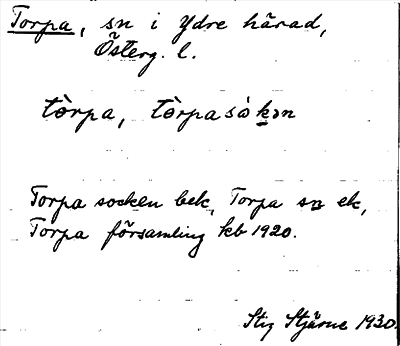 Torpa, sn i Ydre härad,
Österg. l.
tòrpa, tòrpasòkən
Torpa socken bek, Torpa sn ek,
Torpa församling kb 1920.
Stig Stjärne 1930.